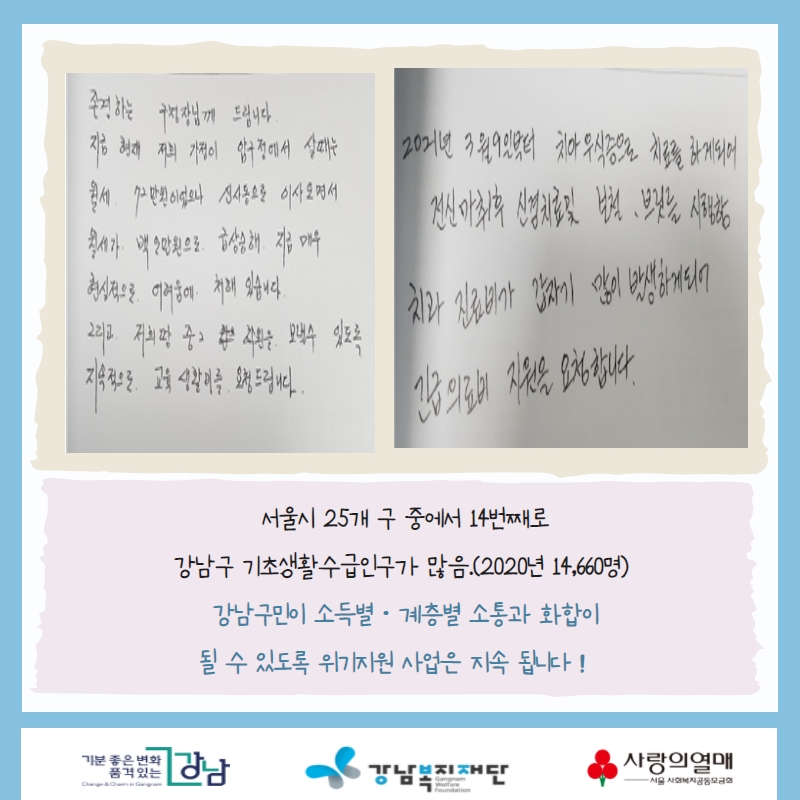 존경하는 구청장님께 드립니다.
지금 현재 저희 가정이 압구정에서 살때는
월세. 72만원이었으나 신사동으로 이사오면서
월세가. 백 만원으로. 급상승해. 지금 매우
현실적으로. 어려움에. 처해 있습니다.
그리고. 저희딸 중2 학원을. 보낼수 있도록
지속적으로. 교육 생활비를. 요청드립니다.
2021년 3월9일부터 치아우식증으로 치료를 하게되어
전신마취후 신경치료및 보철. 브릿지를 시행함
치과 진료비가 갑자기 많이 발생하게되어
긴급의료비 지원을 요청합니다.
서울시 25개 구 중에서 14번째로
강남구 기초생활수급인구가 많음.(2020년 14,660명)
강남구민이 소득별·계층별 소통과 화합이
될 수 있도록 위기지원 사업은 지속 됩니다!
기분 좋은 변화
품격 있는 강남
Change & Charm in Gangnam
강남복지재단
Gangnam
Welfare
Foundation
사랑의열매
서울 사회복지공동모금회